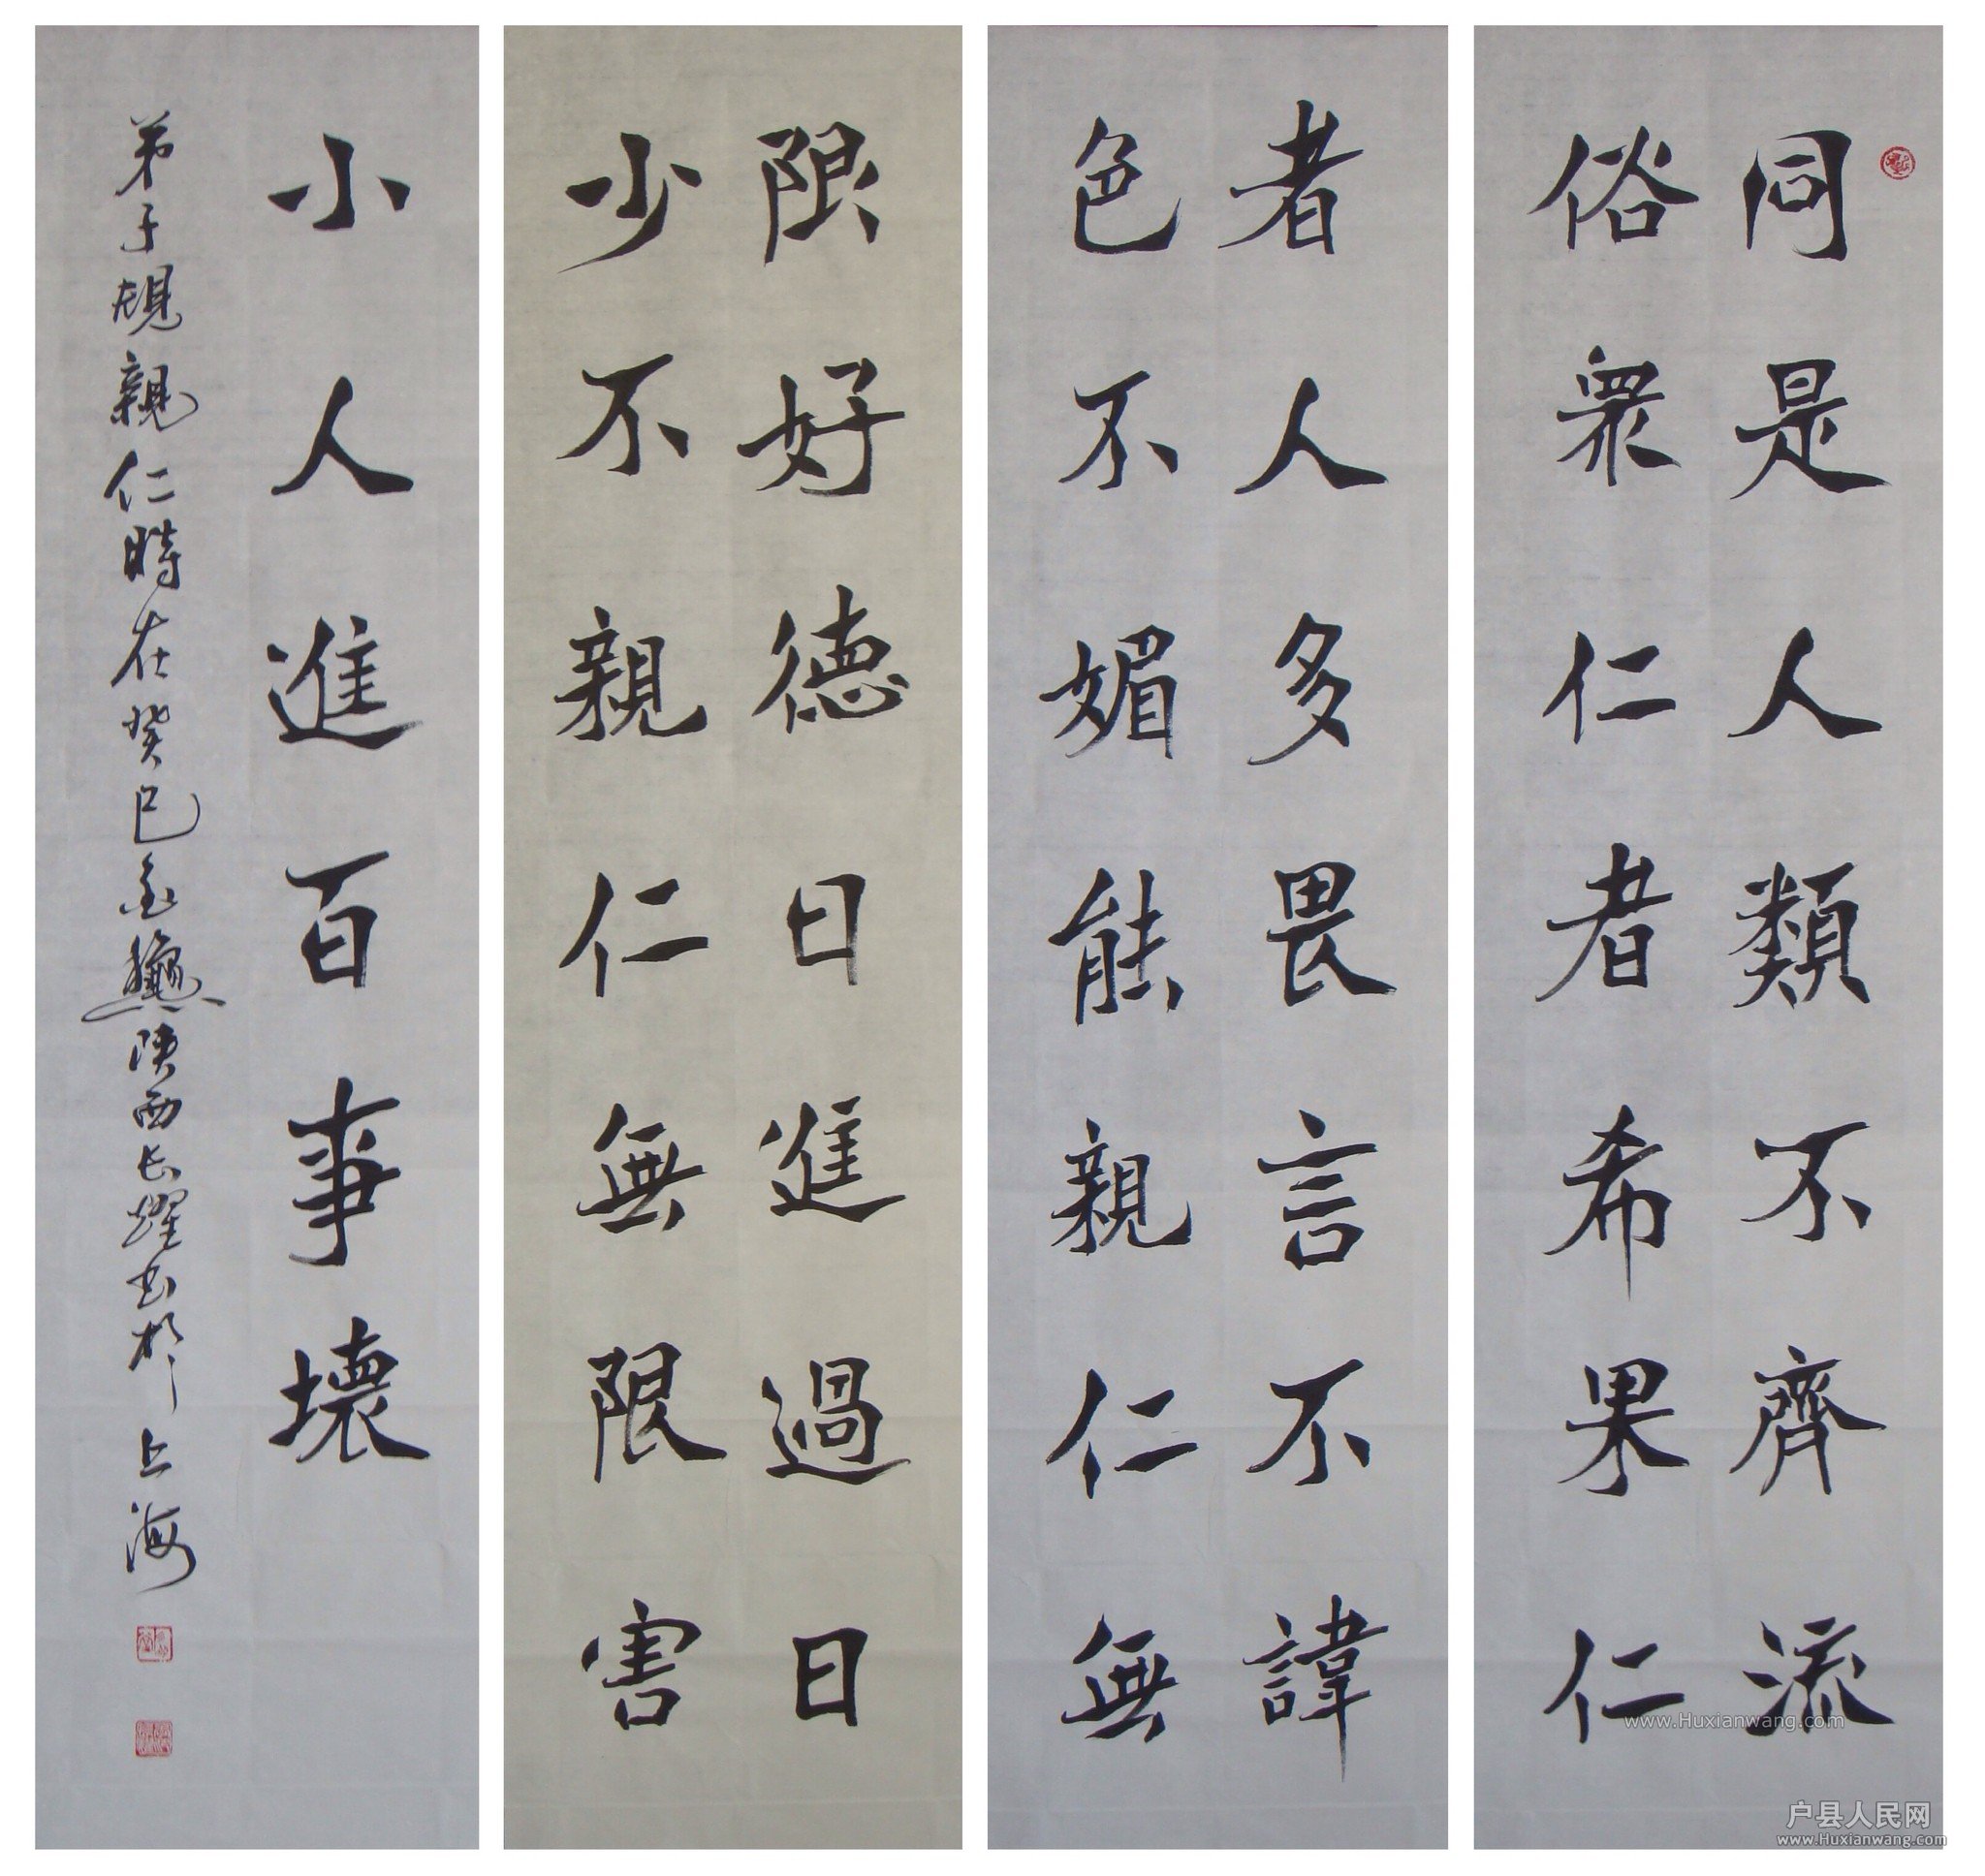 同是人類不齊流
俗衆仁者希果仁
者人多畏言不諱
色不媚能親仁無
限好德日進過日
少不親仁無限害
小人進百事壞
弟子規親仁時在癸巳金秋陝西長耀書於上海
www.Huxianwang.com
户县人民网
www.Huxianwang.com